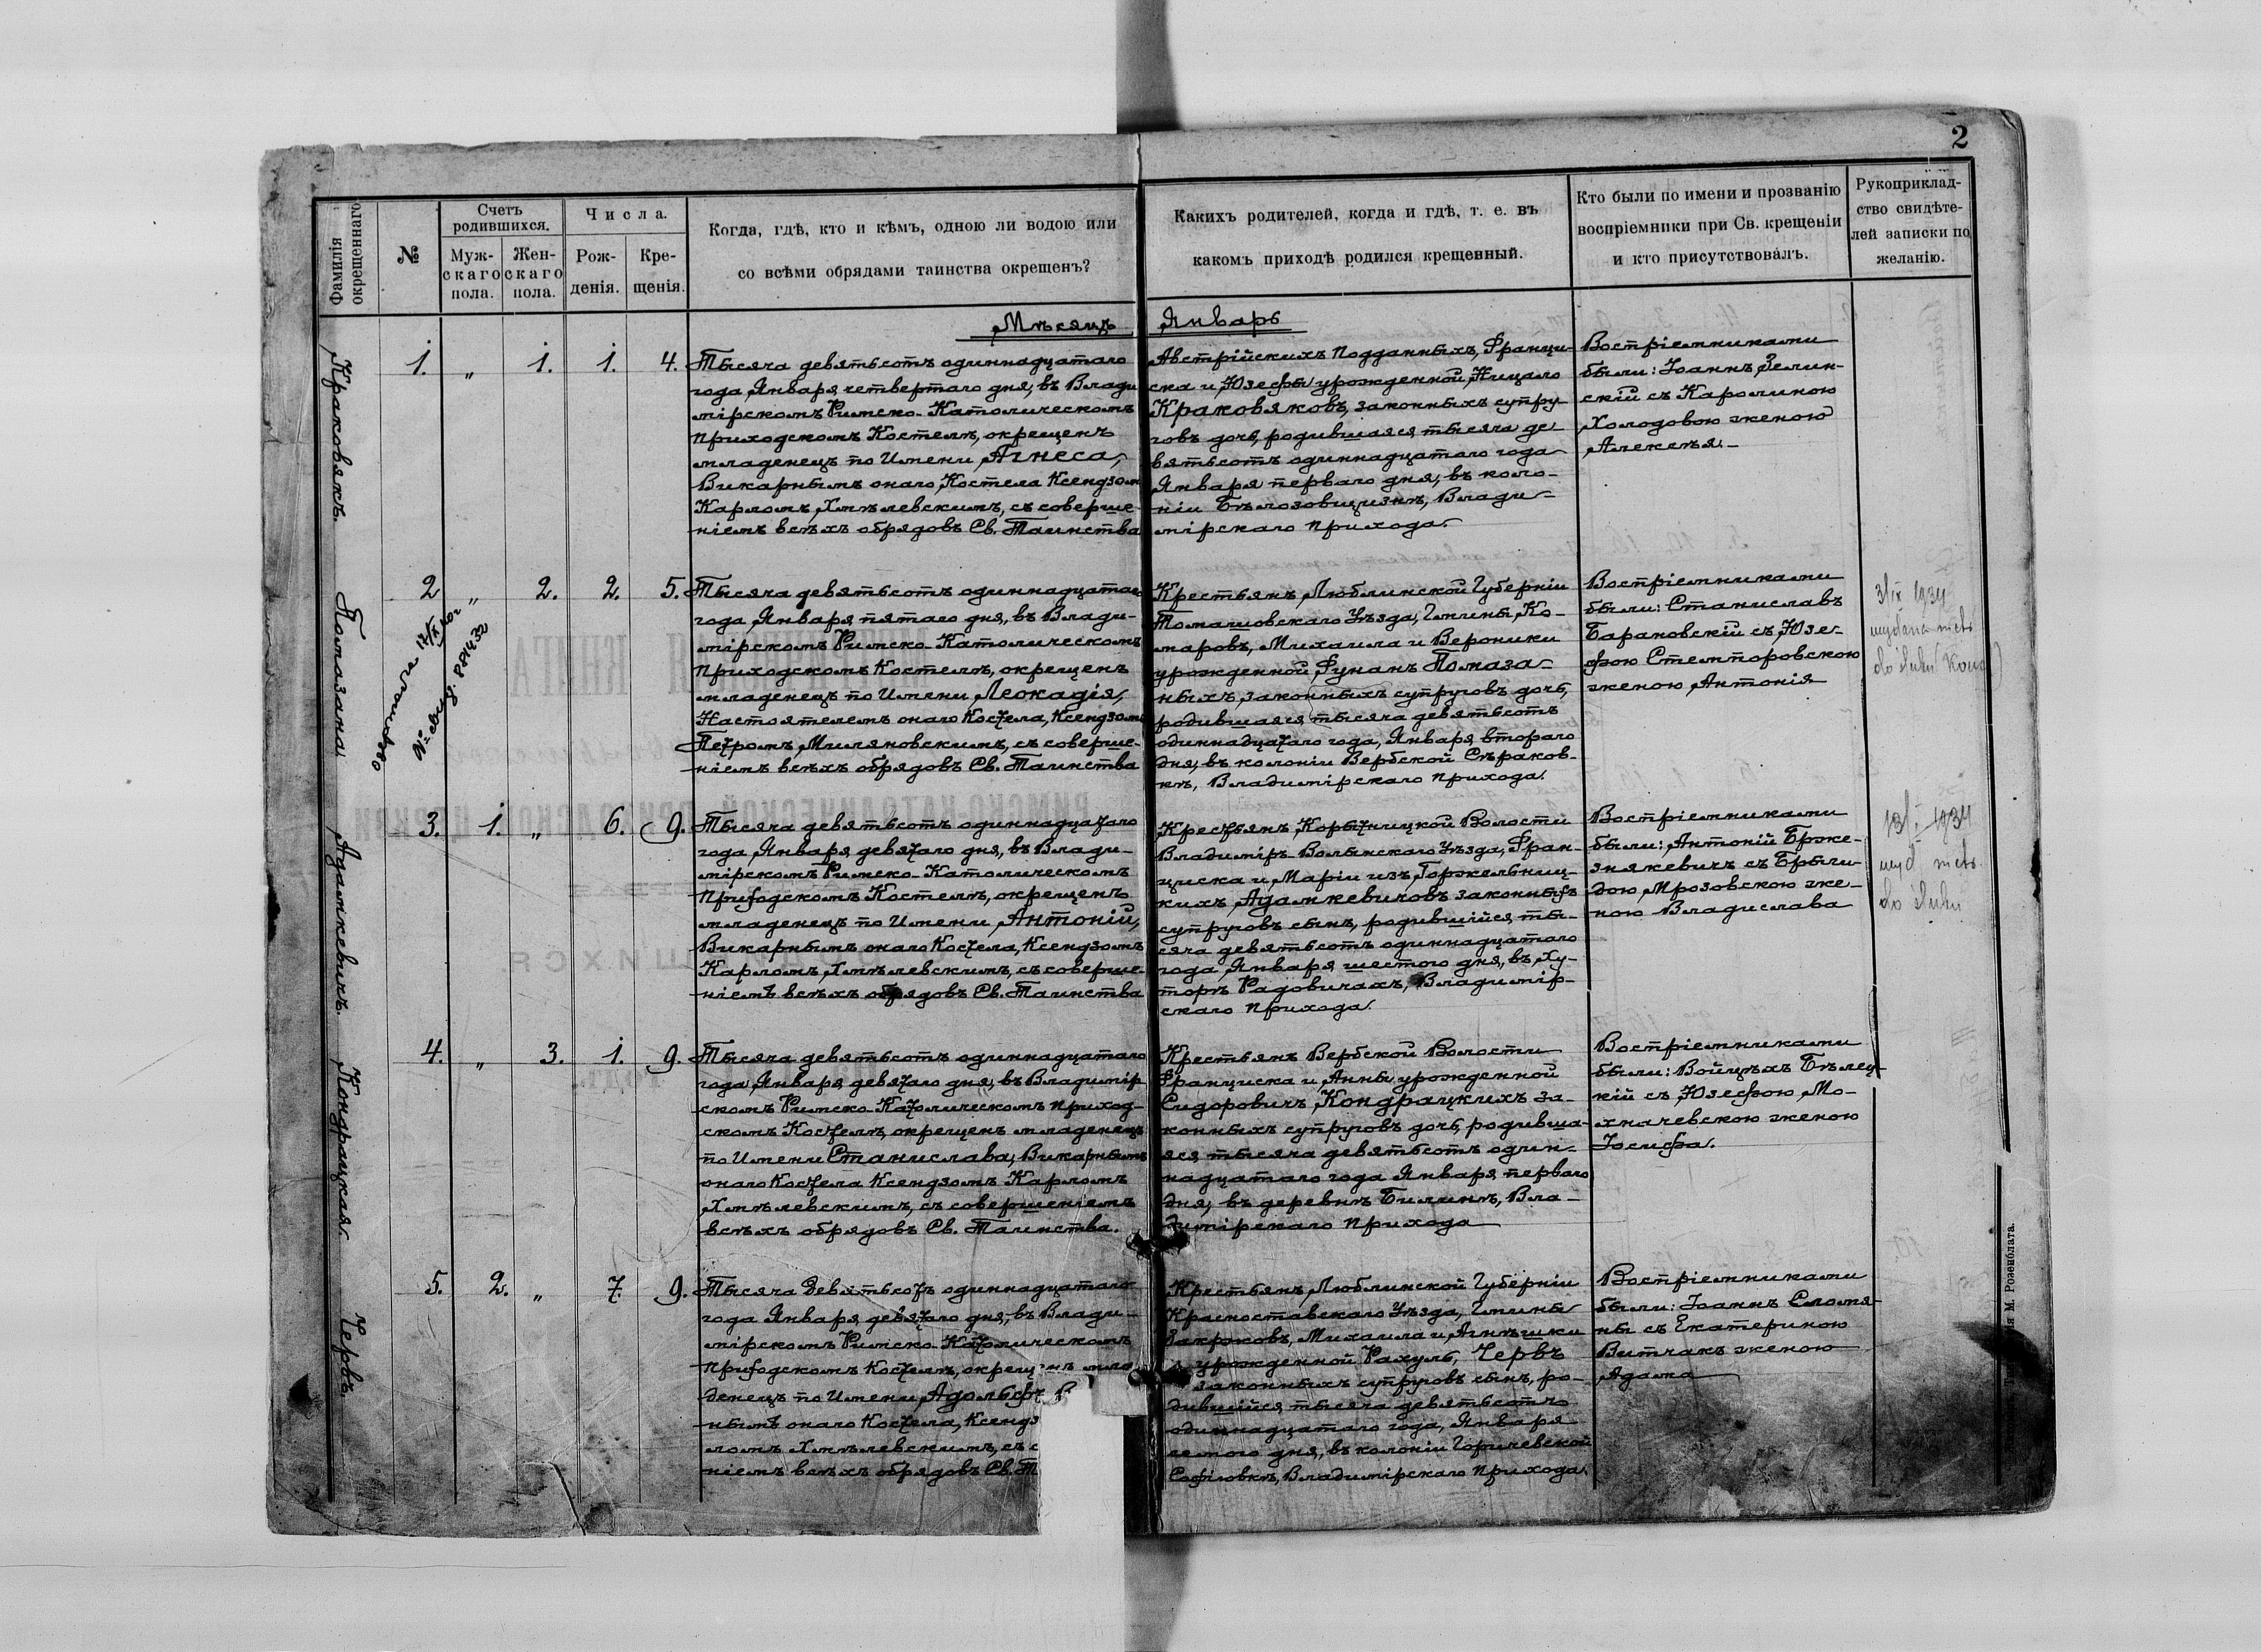 2
Фамилія окрещеннаго
№
Счетъ родившихся.
Мужскаго пола.
Женскаго пола.
Числа.
Рожденія.
Крещенія.
Когда, гдѣ, кто и кѣмъ, одною ли водою или
со всѣми обрядами таинства окрещенъ?
Какихъ родителей, когда и гдѣ, т. е. въ
какомъ приходѣ родился крещенный.
Кто были по имени и прозванію
воспріемники при Св. крещеніи
и кто присутствовалъ.
Рукоприклад-
ство свидѣте-
лей записки по
желанію.
Мѣсяцъ Январь
Краковякъ.
1. „ 1. 1. 4.
Тысяча девятьсотъ одиннадцатаго
года, Января четвертаго дня, въ Влади
мірскомъ Римско-Католическомъ
приходскомъ Костелѣ, окрещенъ
младенецъ по Имени Агнеса,
Викарнымъ онаго Костела Ксендзом
Карломъ Хмѣлевскимъ, съ соверше-
ніемъ всѣхъ обрядовъ Св. Таинства
Австрійскихъ Подданныхъ, Франци-
ска и Юзефы урожденной Ницало
Краковяковъ, законныхъ супру-
говъ дочь, родившаяся тысяча де
вятьсотъ одиннадцатаго года
Января перваго дня, въ коло-
ніи Бѣлозовщизнѣ, Влади-
мірскаго прихода.
Воспріемниками
были: Іоаннъ Зелин-
скій съ Каролиною
Холодовою женою
Алексѣя.
Помазана
2 „ 2. 2. 5.
Тысяча девятьсотъ одиннадцатаго
года, Января пятаго дня, въ Влади-
мірскомъ Римско-Католическомъ
приходскомъ Костелѣ, окрещенъ
младенецъ по Имени Леокадія,
Настоятелемъ онаго Костела, Ксендзомъ
Петромъ Миляновскимъ, съ соверше-
ніемъ всѣхъ обрядовъ Св. Таинства
Крестьянъ, Люблинской Губерніи
Томашовскаго Уѣзда, Гмины, Ко-
маровъ, Михаила и Вероники
урожденной Фунанъ Помаза-
ныхъ, законныхъ супруговъ дочь,
родившаяся тысяча девятьсотъ
одиннадцатаго года, Января втораго
дня, въ колоніи Вербской Сѣраков-
кѣ, Владимірскаго прихода.
Воспріемниками
были: Станиславъ
Барановскій съ Юзе-
фою Стемпоровскою
женою Антонія
1934
wydana metr.
do ślubu
Адамкевичъ.
3. 1. „ 6. 9.
Тысяча девятьсотъ одиннадцатаго
года, Января девятаго дня, въ Влади-
мірскомъ Римско-Католическомъ
приходскомъ Костелѣ, окрещенъ
младенецъ по Имени Антоній,
Викарнымъ онаго Костела, Ксендзомъ
Карломъ Хмѣлевскимъ, съ соверше-
ніемъ всѣхъ обрядовъ Св. Таинства
Крестьянъ, Корытницкой Волости
Владиміръ-Волынскаго Уѣзда, Фран-
циска и Маріи изъ Горжельниц-
кихъ, Адамкевичовъ законныхъ
супруговъ сынъ, родившійся ты-
сяча девятьсотъ одиннадцатаго
года, Января шестого дня, въ Ху-
торѣ Радовичахъ, Владимір-
скаго прихода.
Воспріемниками
были: Антоній Брже-
знякевичъ съ Брыги-
дою Мрозовскою же-
ною Владислава
1934
wyd. metr.
do ślubu
Кондрацкая.
4. „ 3. 1. 9.
Тысяча девятьсотъ одиннадцатаго
года, Января девятаго дня, въ Владимір
скомъ Римско-Католическомъ приход-
скомъ Костелѣ, окрещенъ младенецъ
по Имени Станислава, Викарнымъ
онаго Костела Ксендзомъ Карломъ
Хмѣлевскимъ, съ совершеніемъ
всѣхъ обрядовъ Св. Таинства.
Крестьянъ Вербской Волости
Франциска и Анны урожденной
Сидоровичъ, Кондрацкихъ за-
конныхъ супруговъ дочь, родивша-
яся тысяча девятьсотъ один-
надцатаго года Января перваго
дня, въ деревнѣ Билинѣ, Вла-
димірскаго прихода
Воспріемниками
были: Войцѣхъ Бѣлец-
кій съ Юзефою Мо-
хначевскою женою
Іосифа.
Червъ
5. 2. „ 7. 9.
Тысяча девятьсотъ одиннадцатаго
года Января девятаго дня, въ Влади-
мірскомъ Римско-Католическомъ
приходскомъ Костелѣ, окрещенъ мла
денецъ по Имени Адольфъ В
нымъ онаго Костела, Ксендз
ломъ Хмѣлевскимъ, съ с
ніемъ всѣхъ обрядовъ Св. Т
Крестьянъ, Люблинской Губерніи
Красноставскаго Уѣзда, Гмины
Закржовъ, Михаила и Агнѣшки
урожденной Рахуль, Червъ
законныхъ супруговъ сынъ, ро-
дившійся тысяча девятьсотъ
одиннадцатаго года, Января
семого дня, въ колоніи Горичевской
Софіювкѣ, Владимірскаго прихода.
Воспріемниками
были: Іоаннъ Сломя-
ны съ Екатериною
Витчакъ женою
Адама
М. Розенблата.